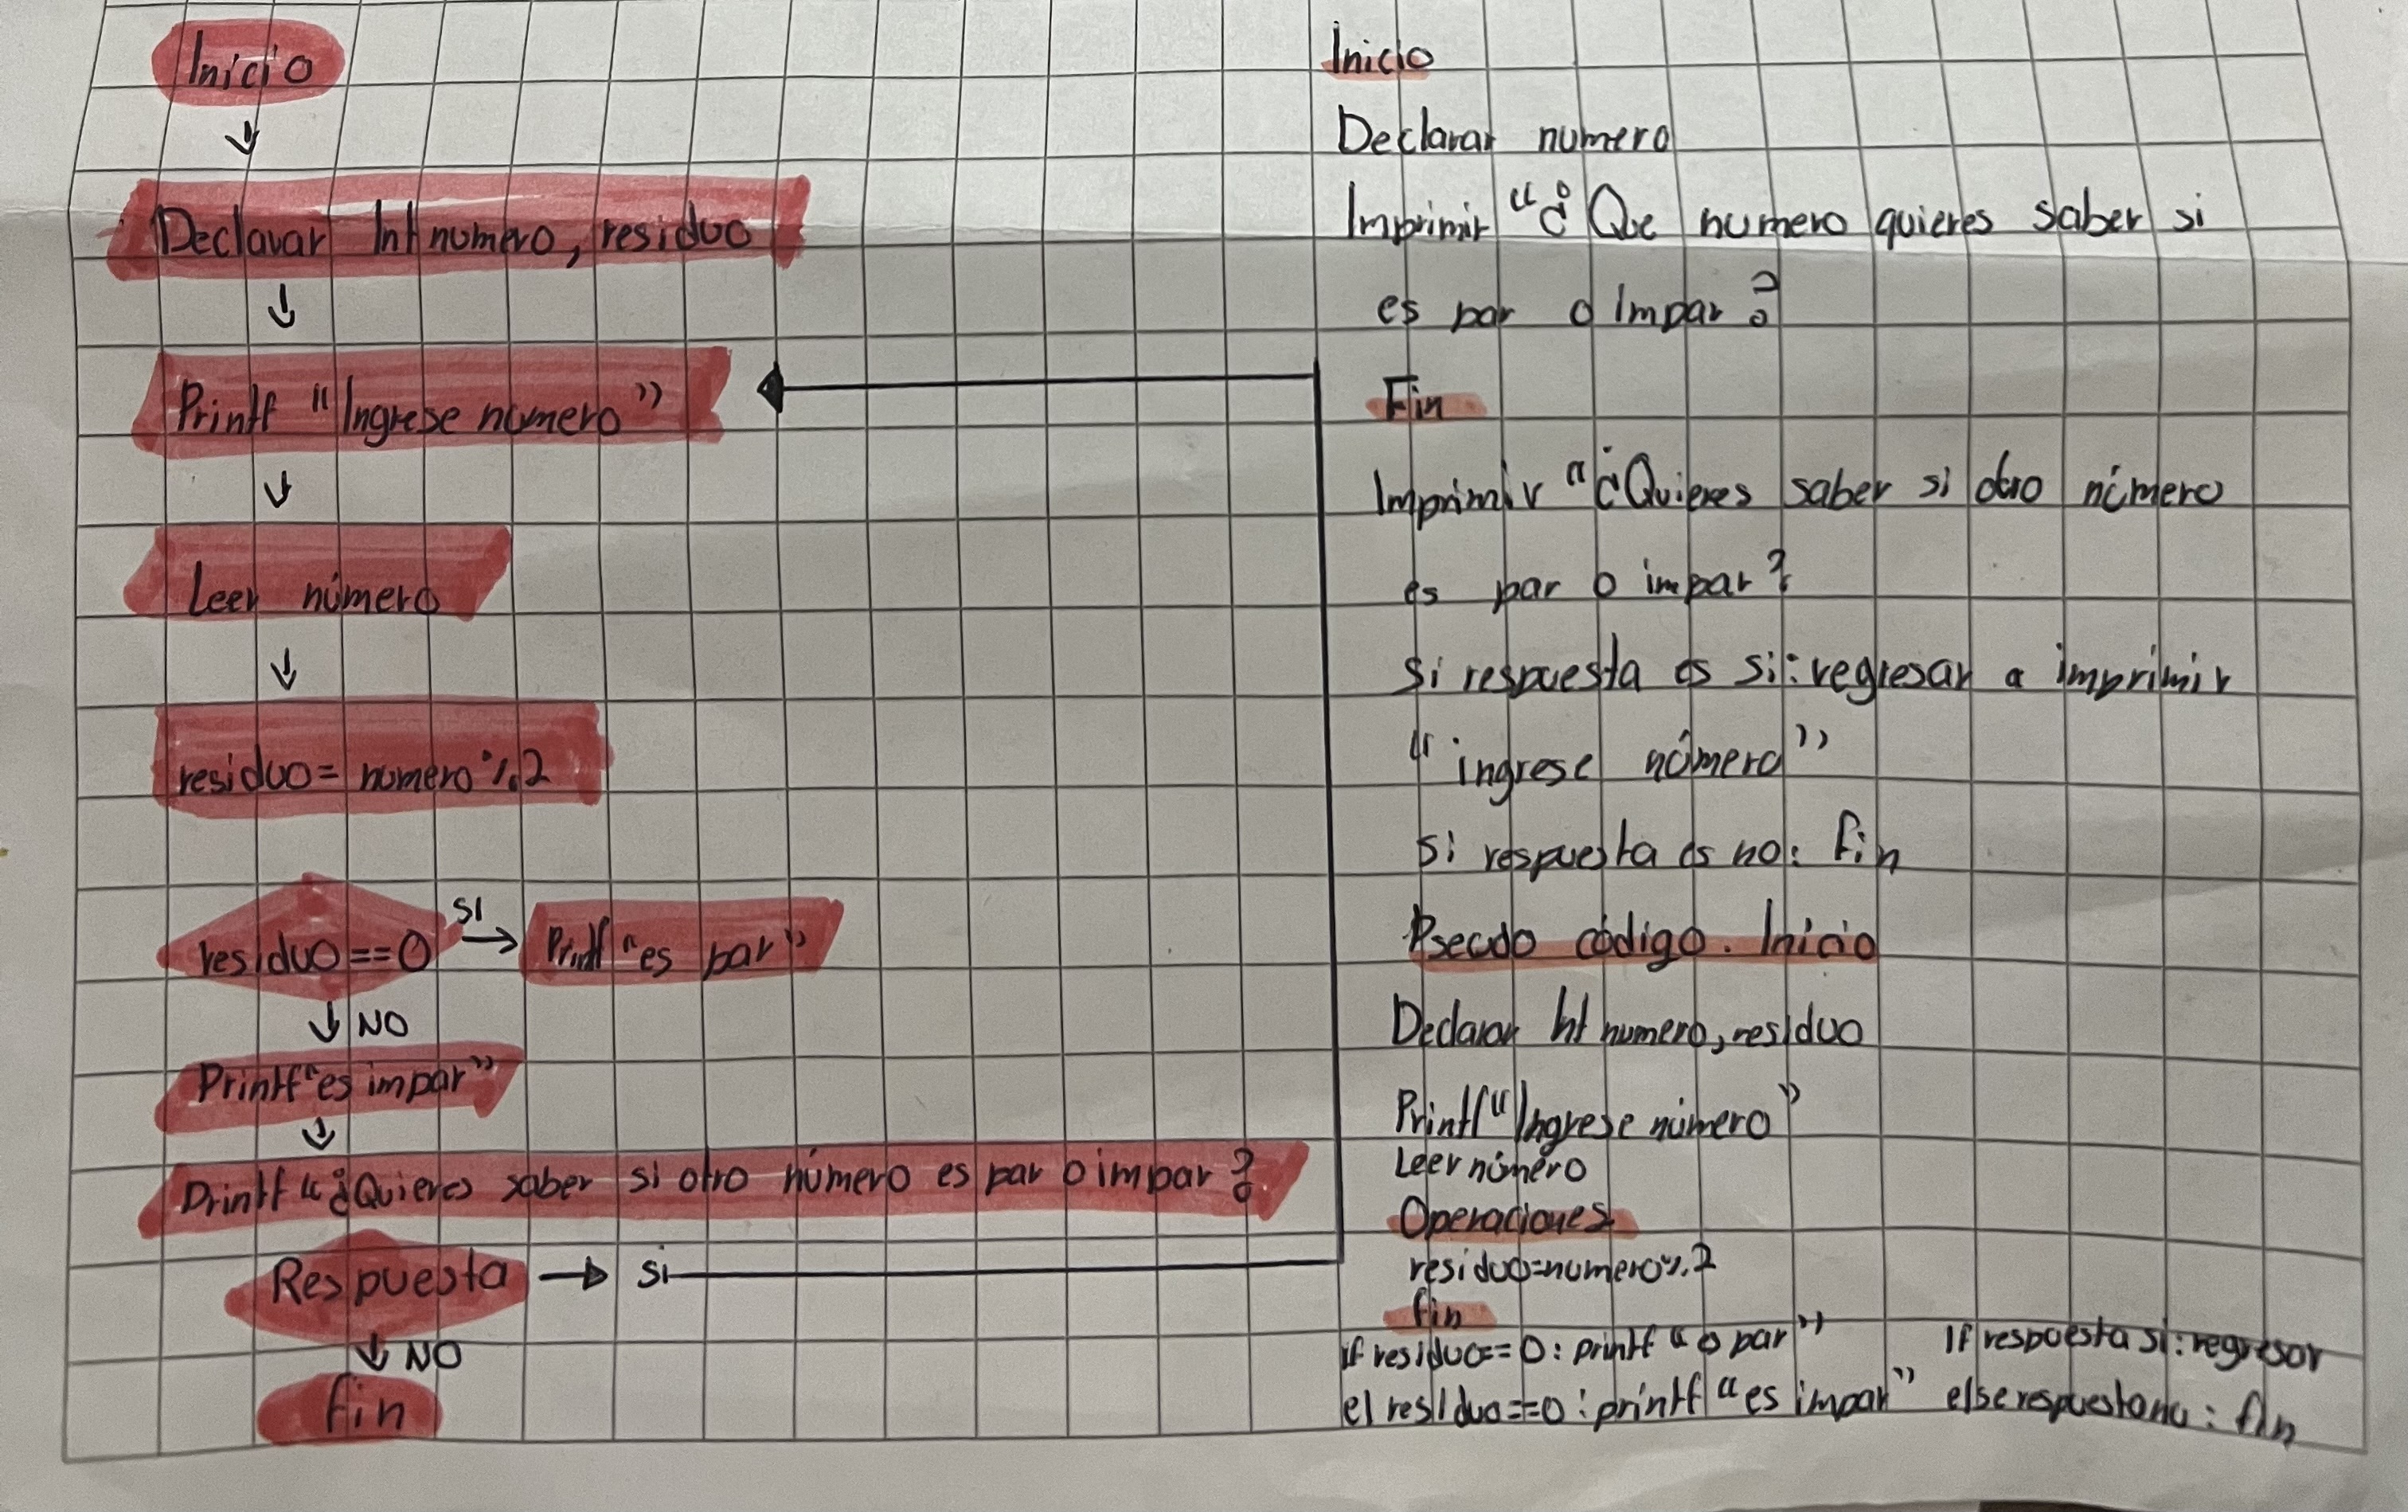 Inicio
Declarar Int numero, residuo
Printf "Ingrese número"
Leer número
residuo= numero%2
residuo==0
SI
Printf "es par"
NO
Printf "es impar"
Printf "¿Quieres saber si otro número es par o impar?
Respuesta
si
NO
fin
Inicio
Declarar numero
Imprimir "¿Que numero quieres saber si
es par o impar?
Fin
Imprimir "¿Quieres saber si otro número
es par o impar?
Si respuesta es si: regresar a imprimir
"ingrese número"
Si respuesta es no: fin
Pseudo código. Inicio
Declarar Int numero, residuo
Printf "Ingrese número"
Leer número
Operaciones
residuo=numero%2
fin
if residuo==0: printf " par"
el residuo==0: printf "es impar"
If respuesta si: regresar
else respuesta no: fin